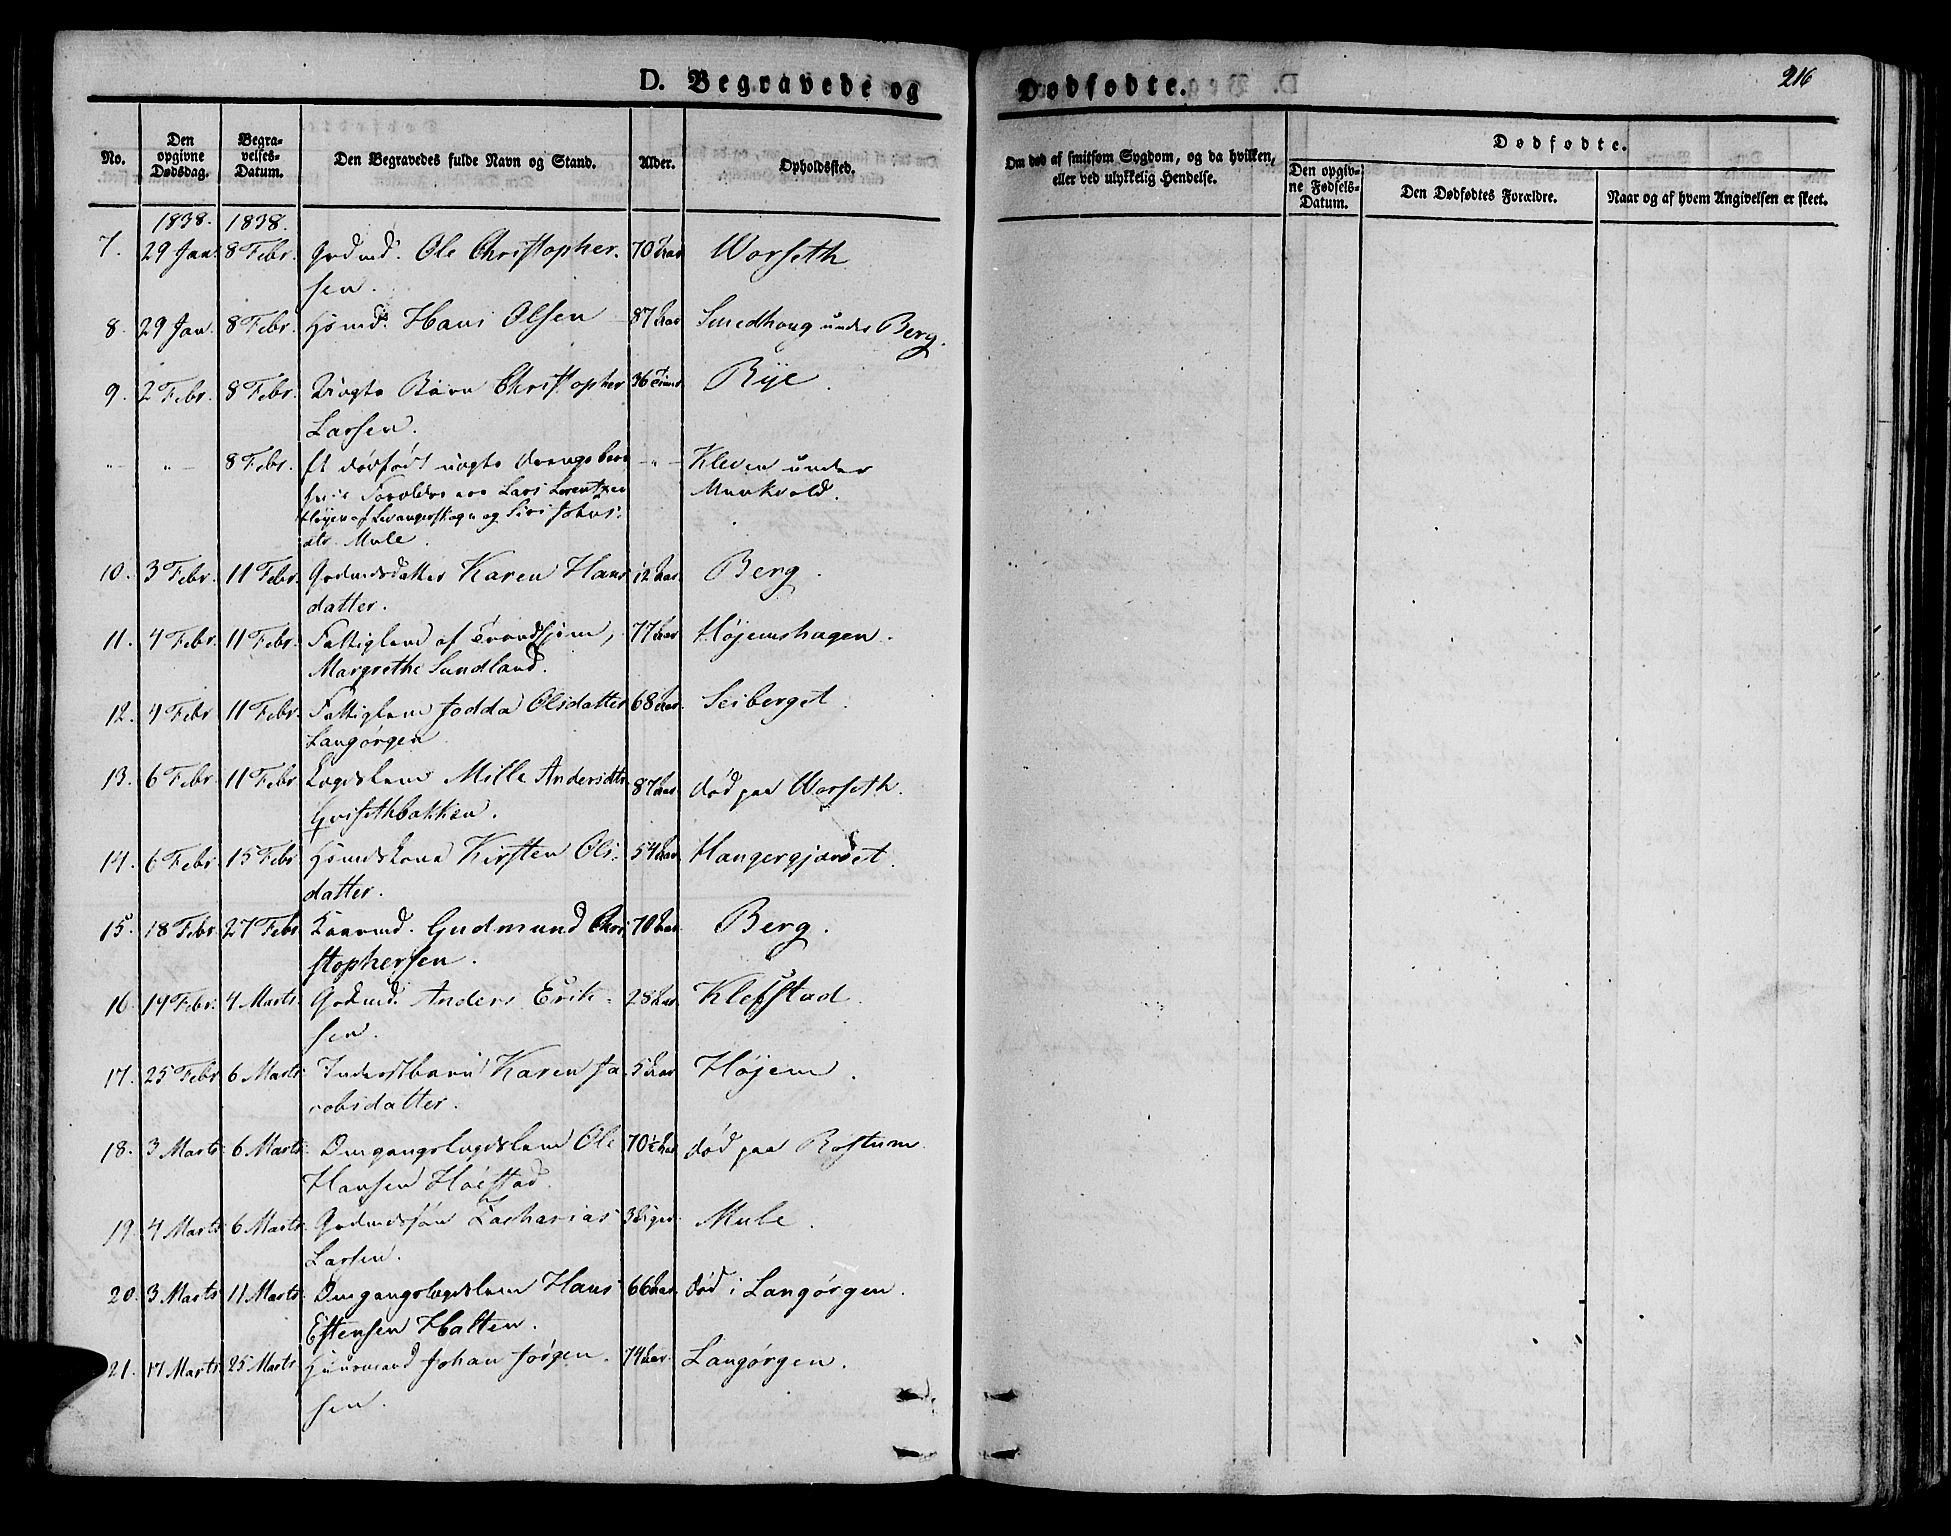 D. Begravede og
Dødfødte.
216
No.
Den opgivne Dødsdag.
Begra-velses-Datum.
Den Begravedes fulde Navn og Stand.
Alder.
Opholdssted.
Om død af smitsom Sygdom, og da hvilken,
eller ved ulykkelig Hendelse.
Dødfødte.
Den opgiv-ne Fødsels-Datum.
Den Dødfødtes Forældre.
Naar og af hvem Angivelsen er skeet.
1838. 1838.
7. 29 Jan. 8 Febr. Gdmd. Ole Christopher- 70 Aar Worseth
sen.
8. 29 Jan. 8 Febr. Hsmd. Hans Olsen 87 Aar Smedhaug under Berg.
9. 2 Febr. 8 Febr. Uægte Barn Christopher 36 Timer Rye.
Larsen.
" " 8 Febr. Et dødfødt uægte Drengebarn " Kleven under
hvis Forældre ere Lars Lorentzen Munkvold.
Høyen af Levangerskogn og Siri Johns
dtr. Mule.
10. 3 Febr. 11 Febr. Gdmdsdatter Karen Hans 12 Aar. Berg.
datter.
11. 4 Febr. 11 Febr. Fattiglem af Trondhjem, 77 Aar Højemshagen.
Margrethe Sundland.
12. 4 Febr 11 Febr. Fattiglem Jodda Olsdatter 68 Aar. Seiberget.
Langørgen
13. 6 Febr 11 Febr Lægdslem Mille Andersdtr 87 Aar. død paa Worseth.
Griisethbakken.
14. 6 Febr 15 Febr Hsmdskone Kirsten Ols- 54 Aar
datter.
15. 18 Febr. 27 Febr Kaarmd. Gudmund Chri 70 Aar. Berg.
stophersen.
16. 19 Febr. 4 Marts. Gdmd. Anders Erik- 28 Aar. Klefstad.
sen.
17. 25 Febr 6 Marts. Inderstbarn Karen Ja- 5 Aar Højem.
cobsdatter.
18. 3 Marts 6 Marts. Omgangslægdslem Ole 70½ Aar død paa Rostum
Hansen Høistad.
19. 4 Marts 6 Marts. Gdmdssøn Zacharias 3 Uger. Mule.
Larsen.
20. 3 Marts 11 Marts. Omgangslægdslem Hans 66 Aar. død i Langørgen.
Estensen Halten.
21. 17 Marts 25 Marts Huusmand Johan Jørgen- 74 Aar. Langørgen.
sen.